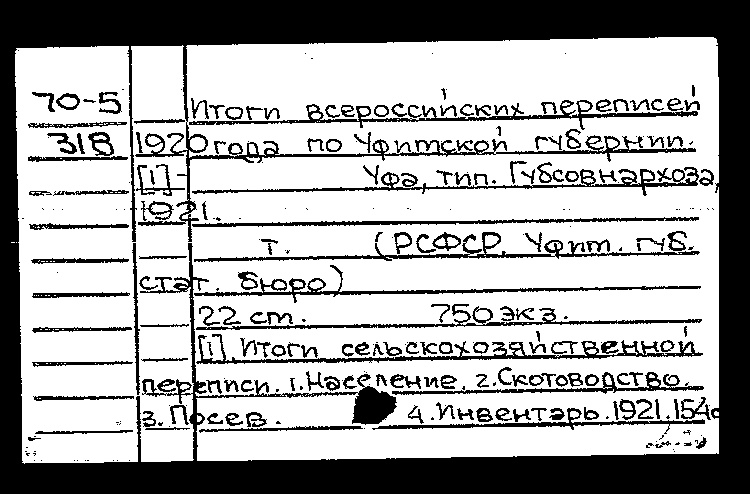 70-5 Итоги всероссийских переписей
318 1920 года по Уфимской губернии.
[1]- Уфа, тип. Губсовнархоза,
1921.
т. (РСФСР. Уфим. губ.
стат. бюро)
22 см. 750 экз.
[1]. Итоги сельскохозяйственной
переписи. 1. Население. 2. Скотоводство.
3. Посев. 4. Инвентарь. 1921. 154с